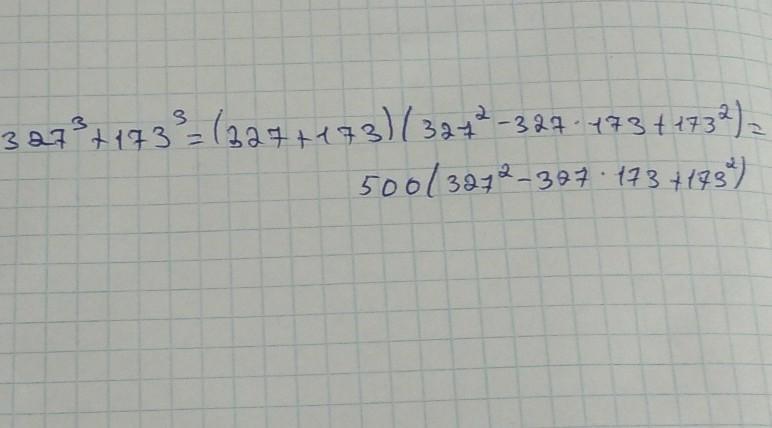 327³+173³=(327+173)(327²-327·173+173²)=
500(327²-327·173+173²)